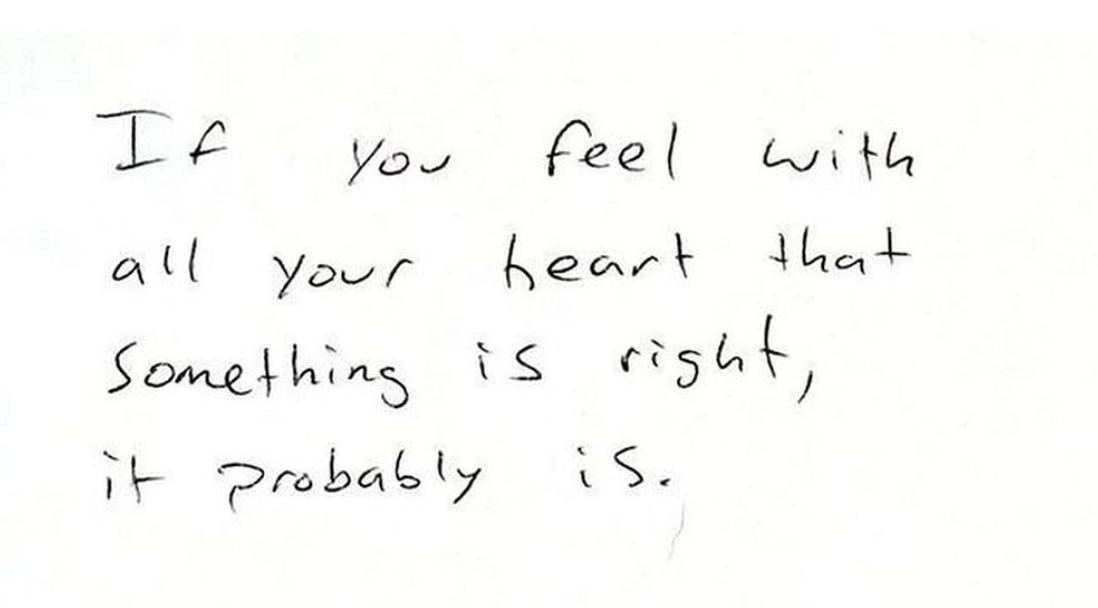 If you feel with
all your heart that
something is right,
it probably is.